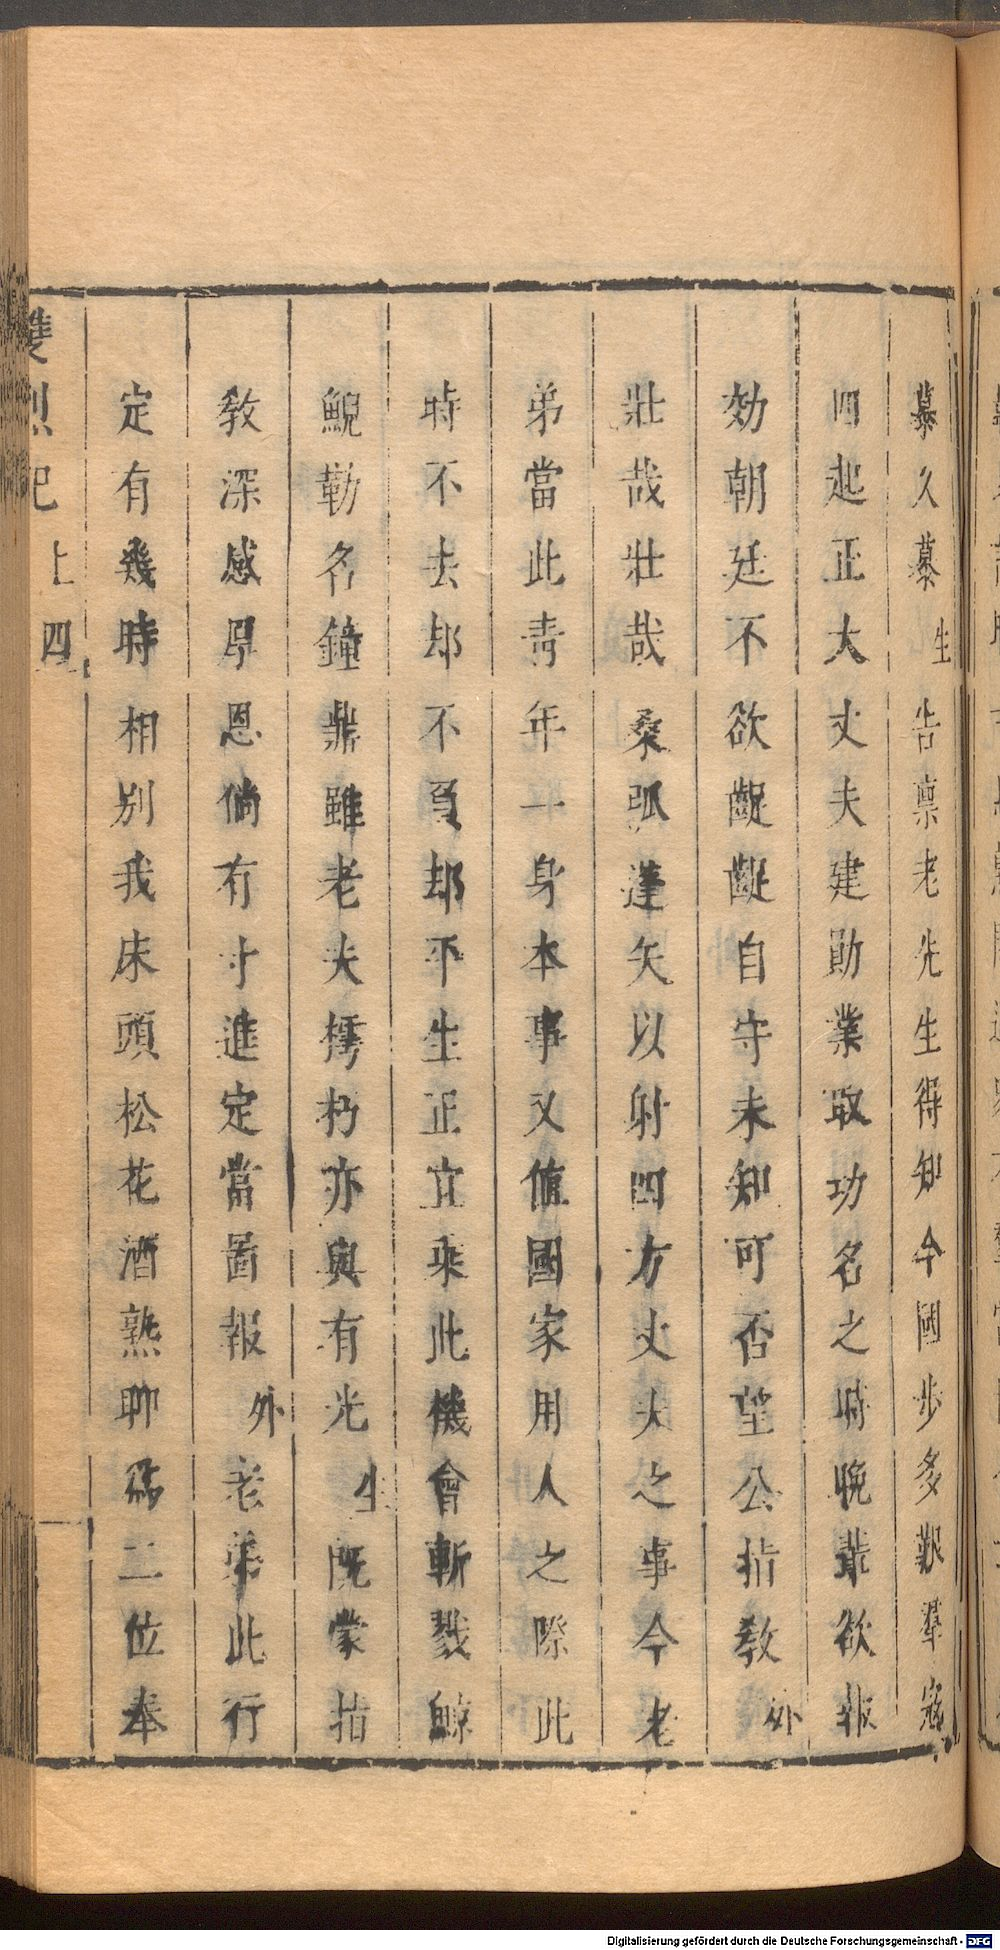 慕久慕生告禀老先生得知今國步多艱羣寇
四起正大丈夫建勛業取功名之時晚輩欲報
効朝廷不欲齷齪自守未知可否望公指教外
壯哉壯哉桑弧蓬矢以射四方丈夫之事今老
弟當此靑年一身本事又值國家用人之際此
時不去却不負却平生正宜乘此機會斬戮鯨
鯢勒名鐘鼎雖老夫樗朽亦與有光生既蒙指
教深感厚恩倘有寸進定當啚報外老弟此行
定有幾時相別我床頭松花酒熟聊爲二位奉
雙烈記 上 四
Digitalisierung gefördert durch die Deutsche Forschungsgemeinschaft - DFG